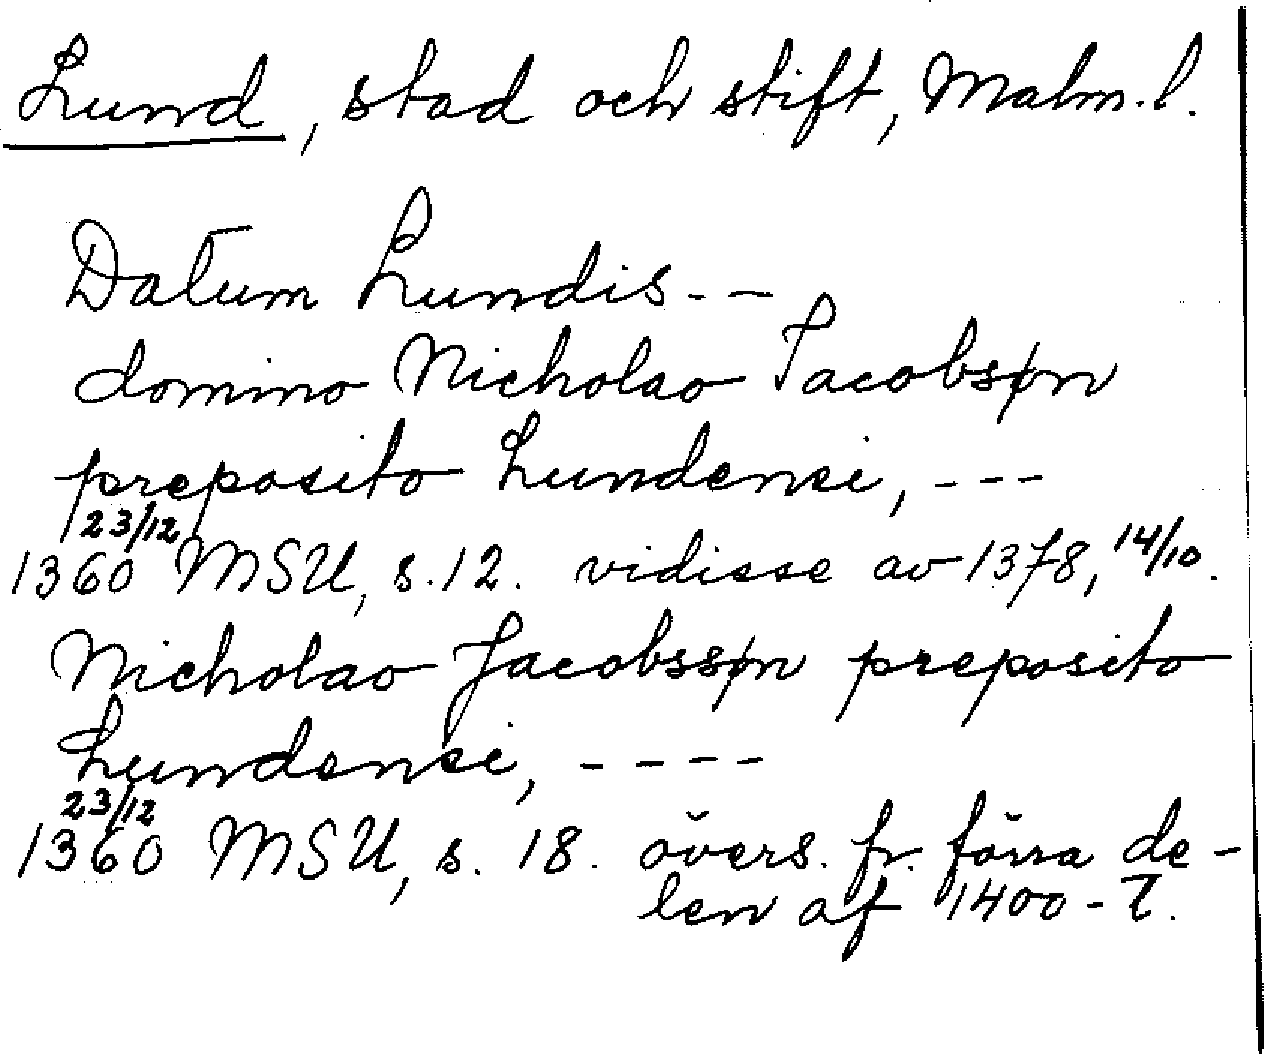 Lund, stad och stift, Malm.l.
Datum Lundis. --
domino Nicholao Jacobsøn
preposito Lundensi, ---
23/12
1360 MSU, s.12. vidisse av 1378, 14/10.
Nicholao Jacobssøn preposito
Lundensi, ----
23/12
1360 MSU, s. 18. övers. fr. förra de-
len af 1400-t.